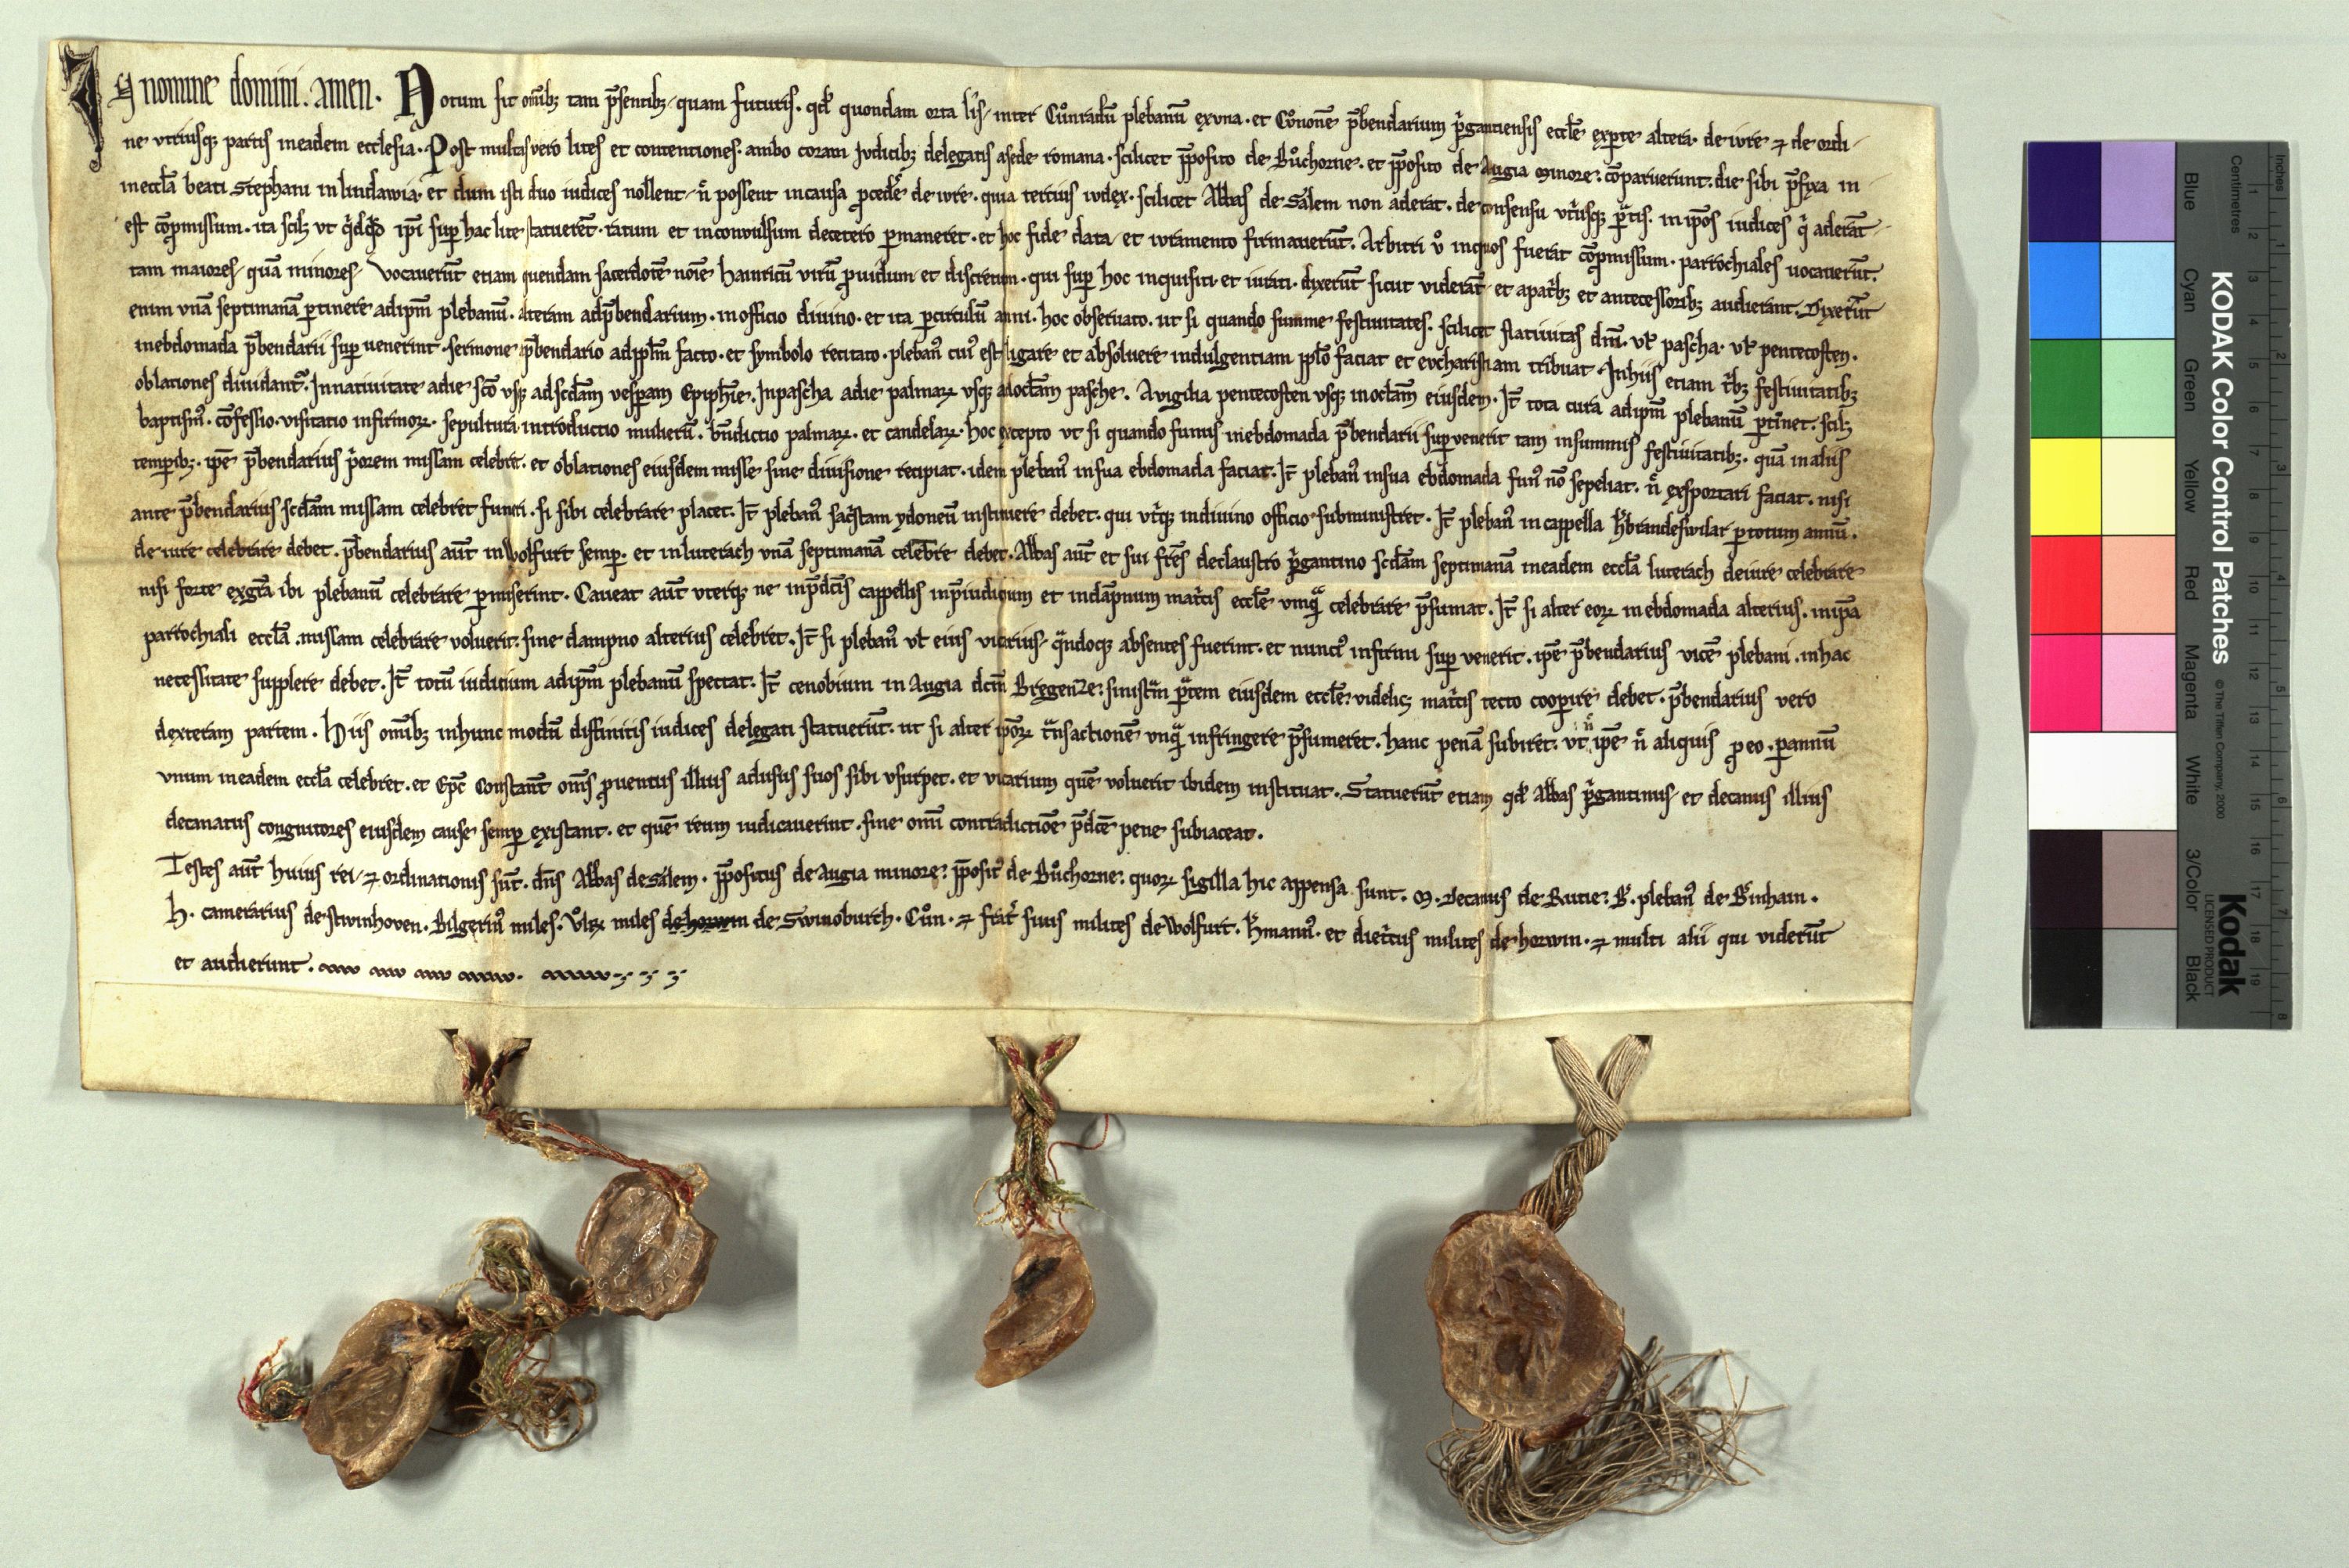 IN nomine domini. amen. Notum sit om̄ibꝫ tam p̄sentibꝫ quam futuris. qđ quondam orta lis inter Cůnradū plebanū ex vna. et Cůnonē p̄bendarium p̄gantiensis eccl̄e ex ꝑte altera. de iure ⁊ de ordi-
ne vtriusqꝫ partis in eadem ecclesia. Post multas vero lites et contentiones. ambo coram Iudicibꝫ delegatis a sede romana. scilicet p̄posito de Bůchorne. et p̄posito de Augia minore. cōparuerunt. die sibi p̄fyxa in
in eccl̄a beati Stephani in lindawia. et dum isti duo iudices nollent. n̄ possent in causa ꝓcedē de iure. quia tertius iudex. scilicet Abbas de Salem non aderat. de consensu vtriusqꝫ ꝑtis. in ip̄os iudices q̄ aderāt
est cōpromissum. ita scilꝫ vt q̄dqͥd ip̄i suꝑ hac lite statuerēt. ratum et inconuulsum de cetero ꝑmaneret. et hoc fide data et iuramento firmauerūt. Arbitri v̊ in quos fuerat cōpromissum. parrochiales uocauerūt.
tam maiores quā minores. Vocauerūt etiam quendam sacerdotē noīe Hainricū virū ꝓuidum et discretum. qui suꝑ hoc inquisiti et iurati. dyxerūt sicut viderāt et a patribꝫ et antecessoribꝫ audierant. Dyxerūt
enim vnā septimanā ꝑtinere ad ip̄m plebanū. alteram ad p̄bendarium. in officio diuino. et ita ꝑ circulū anni. hoc obseruato. ut si quando summe festiuitates. scilicet Natiuitas dn̄i. vl̄ pascha. vl̄ pentecosten.
in ebdomada p̄bendarii suꝑuenerint. sermone p̄bendario ad pp̄l̄m facto. et symbolo recitato. pleban̉ cuỉ est ligare et absoluere indulgentiam pp̄lo faciat et evcharistiam tribuat. In hiis etiam tribꝫ festiuitatibꝫ
oblationes diuidantᷣ. In natiuitate a die sc̄o vsqꝫ ad sc̄dam vesꝑam Epyph̄ie. In pascha a die palmaꝝ vsqꝫ ad octām pasche. A vigilia pentecosten vsqꝫ in octām eiusdem. It̄ tota cura ad ip̄m plebanū ꝑtinet. scilꝫ
baptism̉. cōfessio. visitatio infirmoꝝ. sepultura introductio mulierū. bn̄dictio palmaꝝ. et candelaꝝ. hoc excepto vt si quando funus in ebdomada p̄bendarii suꝑuenerit tam in summis festiuitatibꝫ. quā in aliis
temꝑibꝫ. ip̄e p̄bendarius p̄orem missam celebret. et oblationes eiusdem misse sine diuisione recipiat. idem pleban̉ in sua ebdomada faciat. It̄ pleban̉ in sua ebdomada fun̉ nō sepeliat. n̄ exsportari faciat. nisi
ante p̄bendarius sc̄dam missam celebret funeri. si sibi celebrare placet. It̄ pleban̉ sac̄stam ydoneū instituere debet. qui vtriqꝫ in diuino officio subministret. It̄ pleban̉ in cappella H̄brandeswilar ꝑ totum annū.
de iure celebrare debet. p̄bendarius aūt in Wolfurt semꝑ. et in luterach vnā septimanā celebrare debet. Abbas aūt et sui fr̄es de claustro p̄gantino sc̄dam septimanā in eadem eccl̄a luterach de iure celebrare
nisi forte ex gr̄a ibi plebanū celebrare ꝑmiserint. Caueat aūt vterqꝫ ne in p̄dc̄is cappellis in p̄iudicium et in dāpnum matricis eccl̄e vnqᷓ celebrare p̄sumat. It̄ si alter eoꝝ in ebdomada alterius. in ip̄a
parrochiali eccl̄a. missam celebrare voluerit. sine dampno alterius celebret. It̄ si pleban̉ vl̄ eius vicarius. qᷓndoqꝫ absentes fuerint. et nunct̉ infirmi suꝑuenerit. ip̄e p̄bendarius vicē plebani. in hac
necessitate supplere debet. It̄ totū iudicium ad ip̄m plebanū spectat. It̄ cenobium in Augia dc̄m Bregenze. sinistrā ꝑtem eiusdem eccl̄e. videlicꝫ matricis tecto cooꝑire debet. p̄bendarius vero
dexteram partem. Hiis om̄ibꝫ in hunc modū diffinitis iudices delegati statuerūt. ut si alter ip̄oꝝ trāsactionē vnqᷓ infringere p̄sumeret. hanc penā subiret. vt n̄ ip̄e n̄ aliquis ꝓ eo. ꝑ annū
vnum in eadem eccl̄a celebret. et Ep̄c Constant̄ om̄s ꝓuentus illius ad usus suos sibi vsurpet. et vicarium quē voluerit ibidem instituat. Statuerūt etiam qđ Abbas p̄gantinus et decanus illius
decanatus cognitores eiusdem cause semꝑ existant. et quē reum iudicauerint. sine omi contradictiōe p̄dc̄e pene subiaceat.
Testes aūt huius rei ⁊ ordinationis sūt. dn̄s Abbas de Salem. p̄positus de Augia minore. p̄posit̉ de Bůchorne. quoꝝ sigilla hic appensa sunt. M. Decanus de Rutie. B. pleban̉ de Binhain.
H. camerarius de Stwinhoven. Bilgerin̉ miles. Vͦlrꝝ miles de horwin de Swinoburch. Cůn. ⁊ frat̄ suus milites de Wolfurt. H̄mann̉. et diet̄cus milites de horwin. ⁊ multi alii qui viderūt
et audierunt.
KODAK Color Control Patches
© The Tiffen Company, 2000
Kodak
LICENSED PRODUCT
Blue Cyan Green Yellow Red Magenta White 3/Color Black
Inches 1 2 3 4 5 6 7 8
Centimetres 1 2 3 4 5 6 7 8 9 10 11 12 13 14 15 16 17 18 19